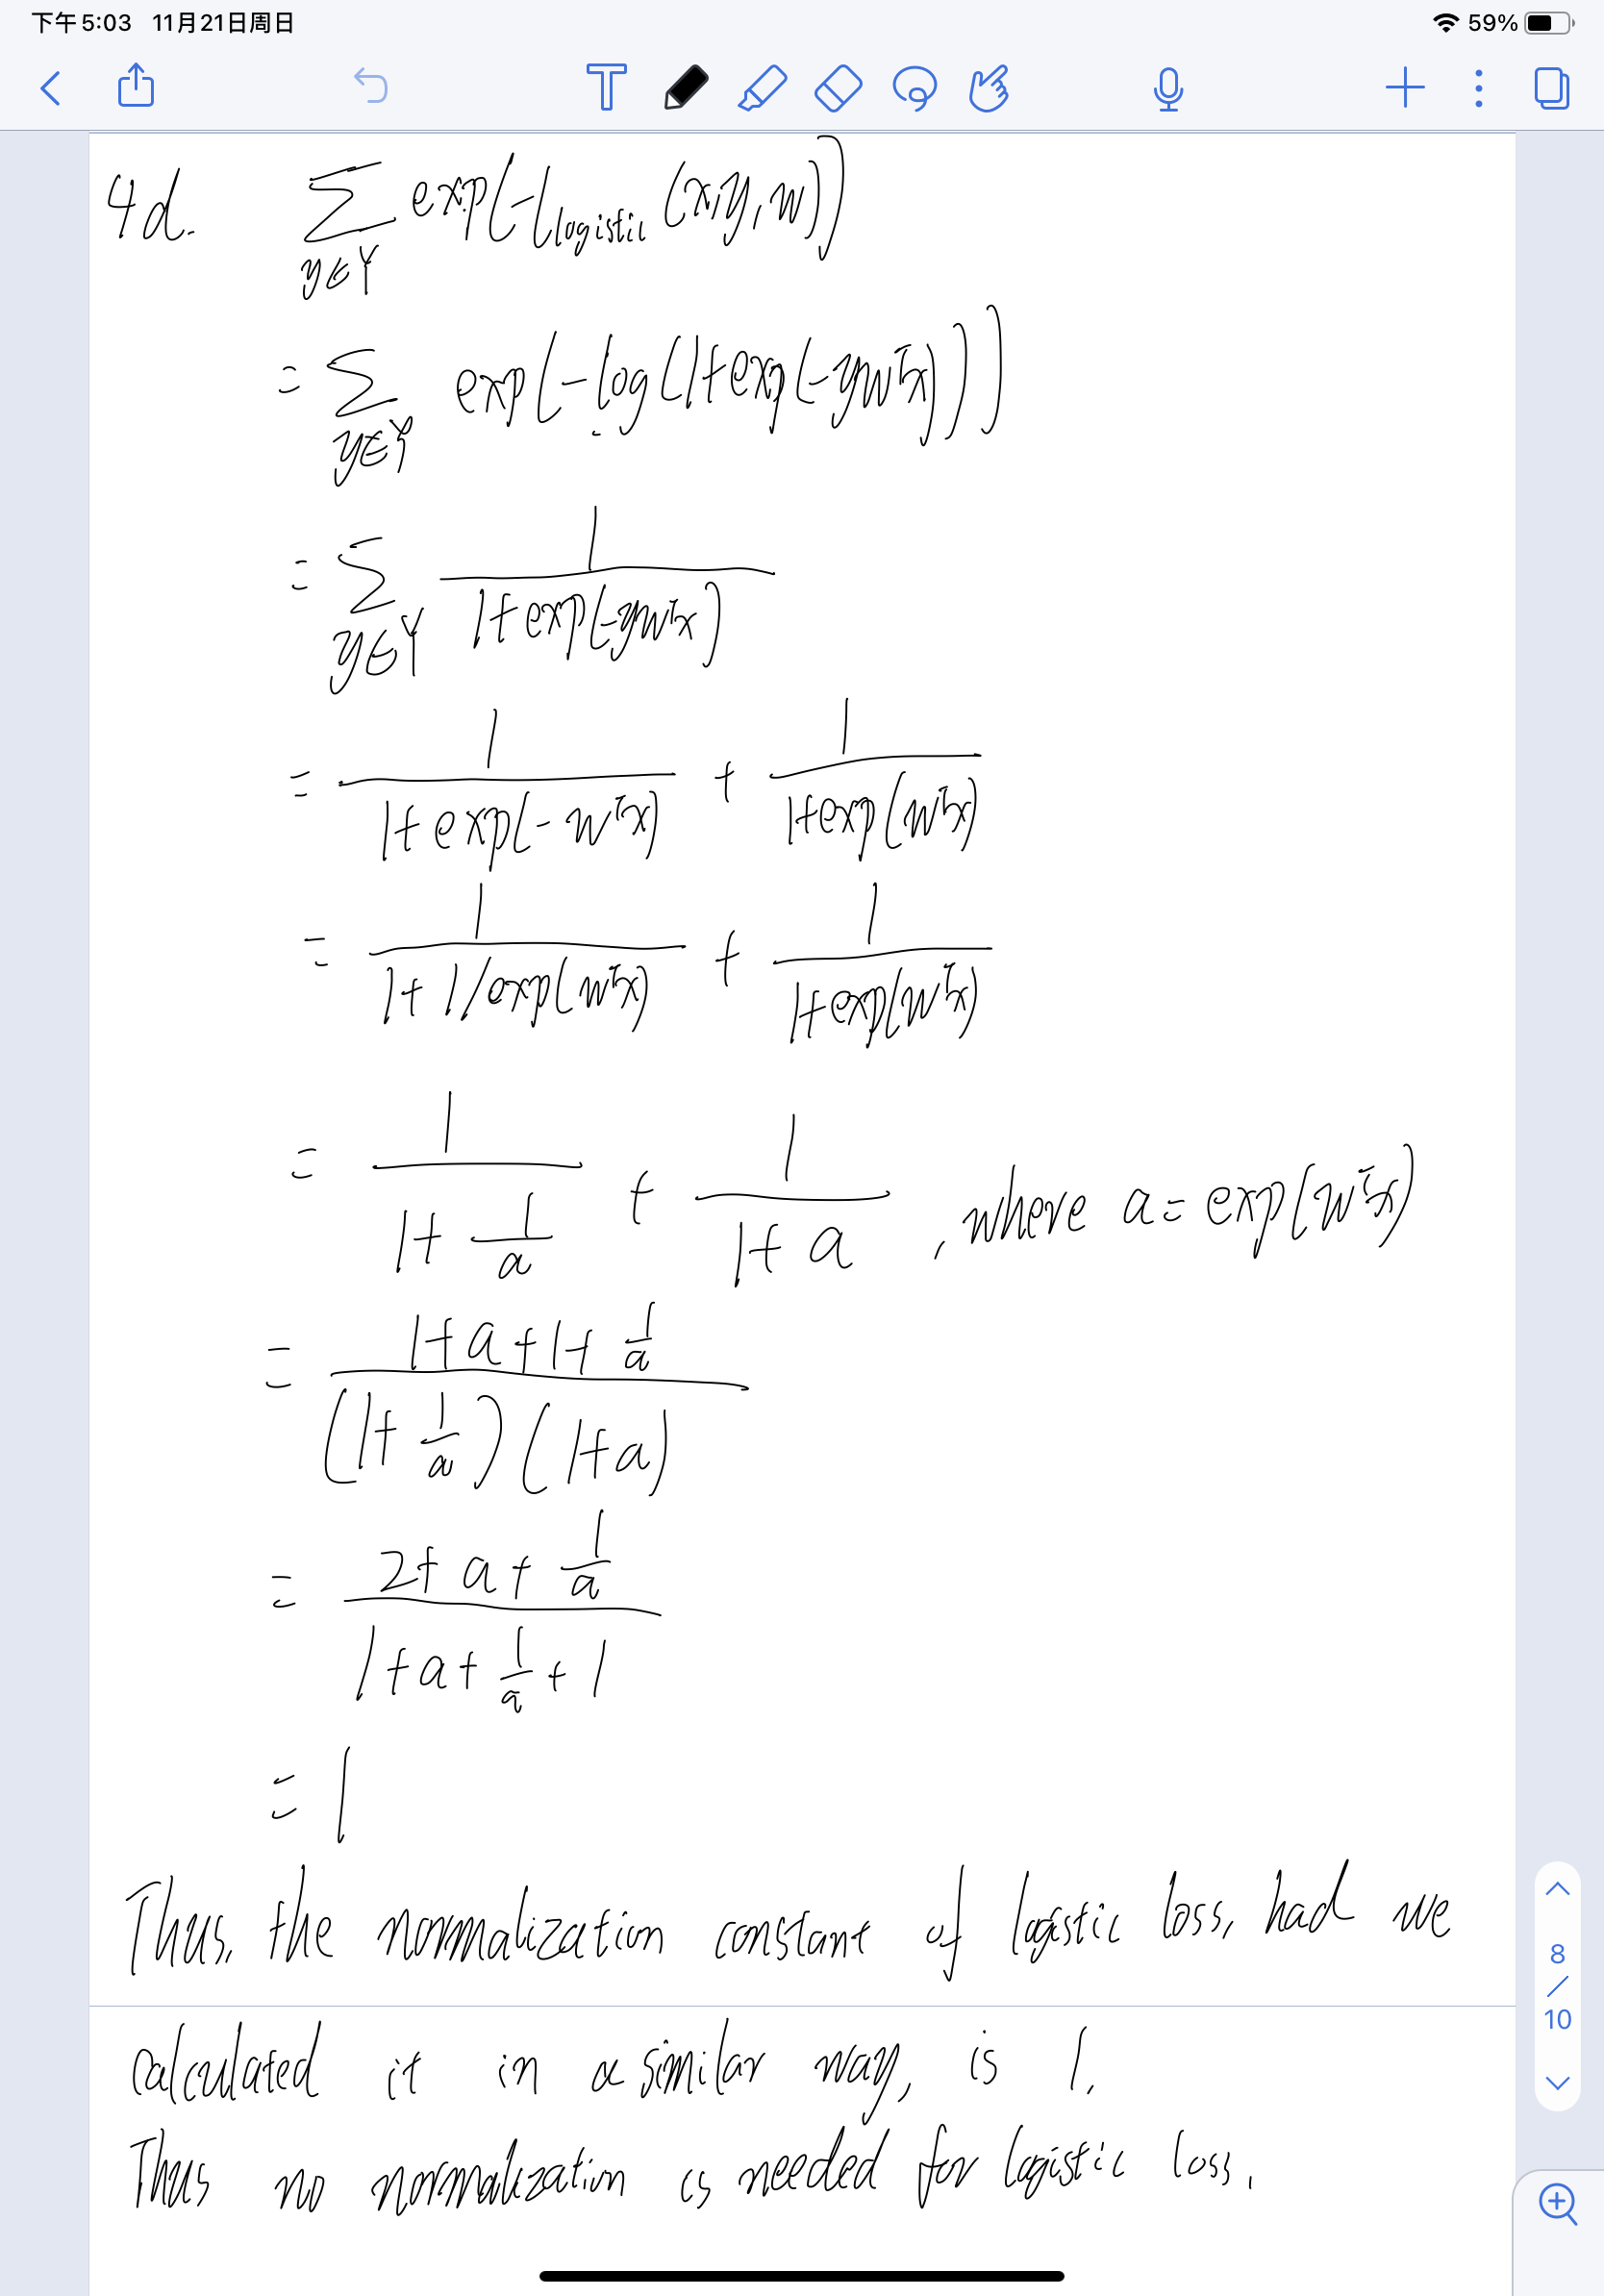 下午5:03 11月21日周日 59%
T
4d. ∑_{y∈Y} exp(-l_{logistic}(x,y,w))
= ∑_{y∈Y} exp(-log(1+exp(-yw^Tx)))
= ∑_{y∈Y} 1/(1+exp(-yw^Tx))
= 1/(1+exp(-w^Tx)) + 1/(1+exp(w^Tx))
= 1/(1+1/exp(w^Tx)) + 1/(1+exp(w^Tx))
= 1/(1+1/a) + 1/(1+a) , where a = exp(w^Tx)
= (1+a+1+1/a)/((1+1/a)(1+a))
= (2+a+1/a)/(1+a+1/a+1)
= 1
Thus, the normalization constant of logistic loss, had we
calculated it in a similar way, is 1.
Thus no normalization is needed for logistic loss.
8
/
10